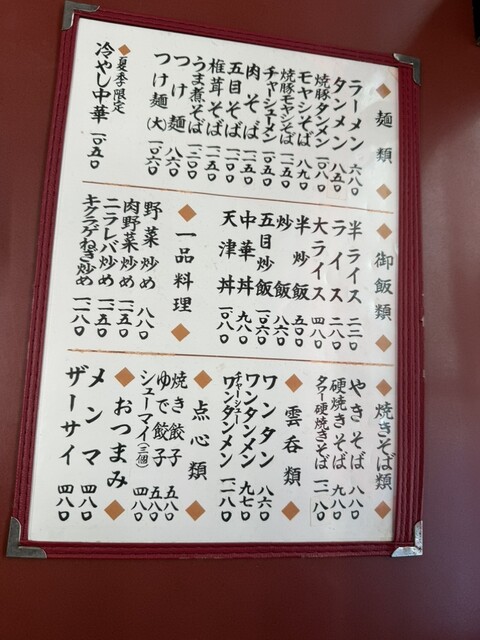 麺類
ラーメン 六八〇
タンメン 八五〇
焼豚タンメン 一〇八〇
モヤシそば 八九〇
焼豚モヤシそば 一一五〇
チャーシューメン 一〇五〇
肉そば
五目そば
椎茸そば
うま煮そば
つけ麺 八六〇
つけ麺(大) 一〇六〇
夏季限定
冷やし中華 一〇五〇
御飯類
半ライス 二二〇
ライス 二八〇
大ライス 四八〇
半炒飯
炒飯 八六〇
五目炒飯 一〇六〇
中華丼 九八〇
天津丼 一〇八〇
一品料理
野菜炒め 八八〇
肉野菜炒め 一一五〇
ニラレバ炒め 一一五〇
キクラゲねぎ炒め 一二八〇
焼きそば類
やきそば 八八〇
硬焼きそば 九八〇
タワー硬焼きそば
雲呑類
ワンタン 八六〇
ワンタンメン 九七〇
チャーシューワンタンメン 一二八〇
点心類
焼き餃子 五八〇
ゆで餃子 五八〇
シューマイ(三個) 四八〇
おつまみ
メンマ 四八〇
ザーサイ 四八〇